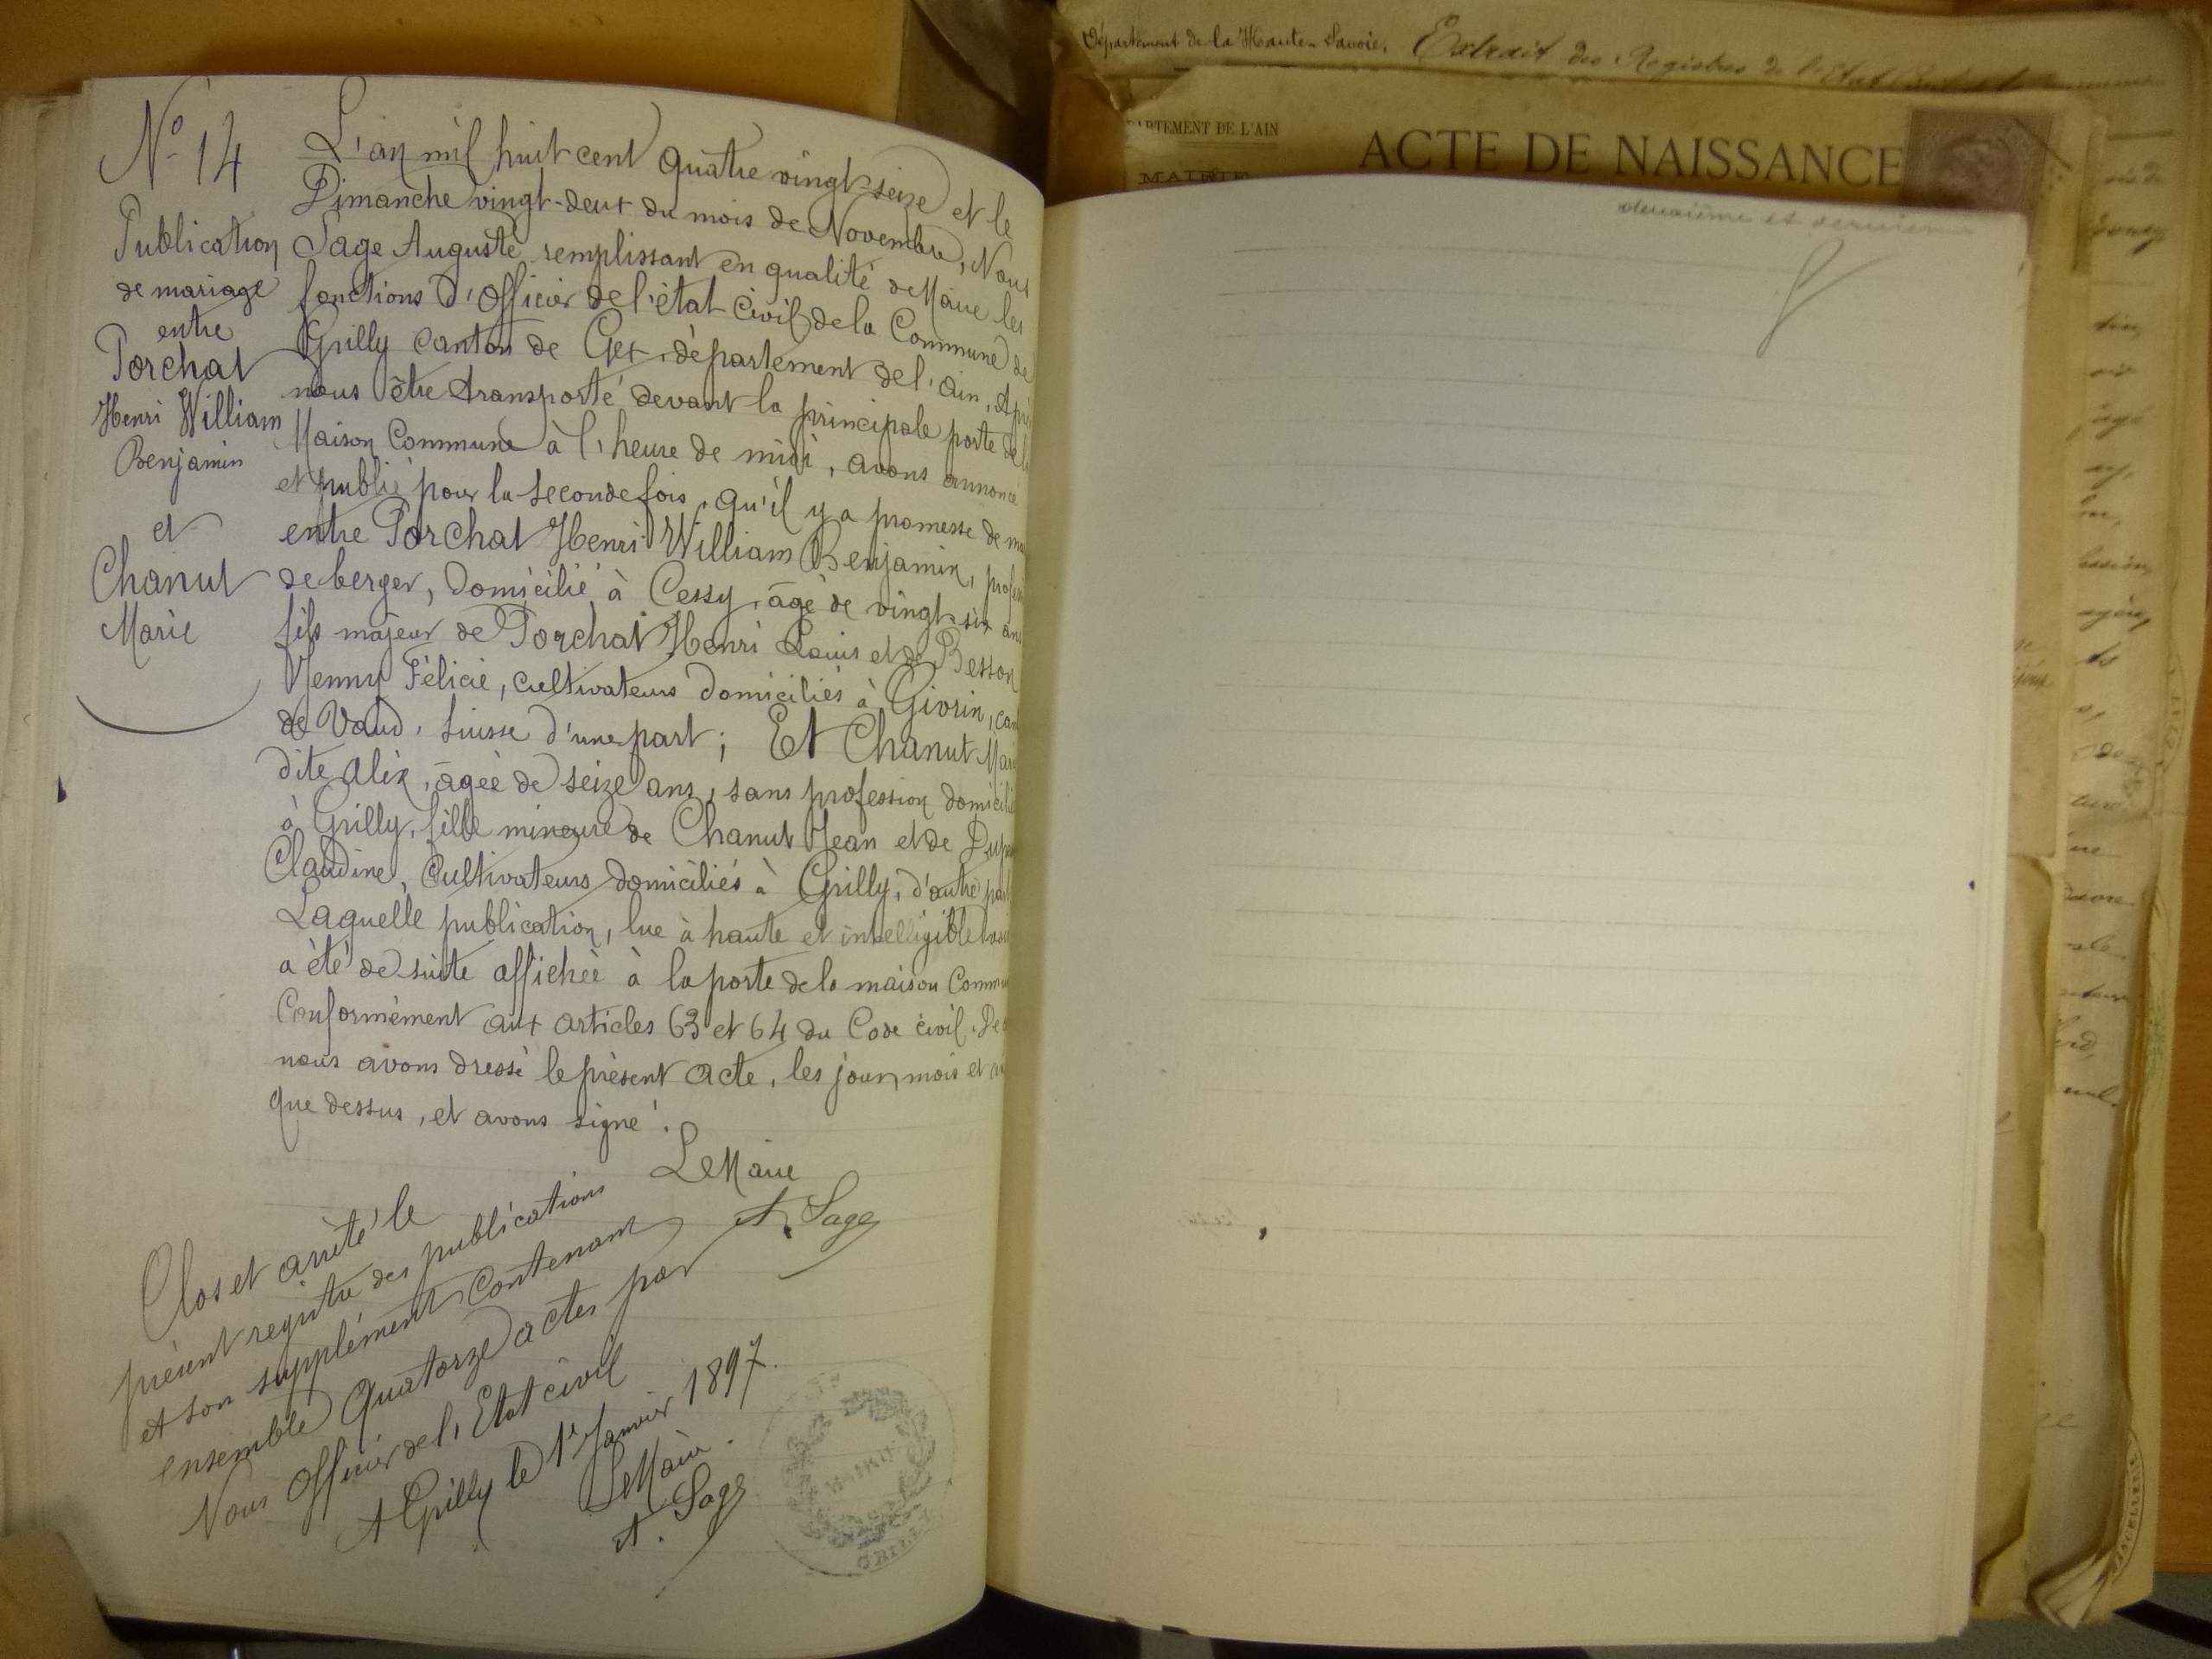 Nº 14
Publication
de mariage
entre
Porchat
Henri William
Benjamin
et
Chanut
Marie
L'an mil huit cent quatre vingt-seize et le
Dimanche vingt-deux du mois de Novembre, Nous
Sage Auguste remplissant en qualité de Maire les
fonctions d'Officier de l'état civil de la Commune de
Grilly canton de Gex, département de l'ain, Apr
nous être transporté devant la principale porte de l
Maison Commune à l'heure de midi, avons annoncé
et publié pour la seconde fois, qu'il y a promesse de ma
entre Porchat Henri William Benjamin, profe
de berger, domicilié à Cessy, âgé de vingt-six ans
fils majeur de Porchat Henri Louis et de Besson
Jenny Félicie, cultivateurs domiciliés à Givrin, can
de Vaud, Suisse d'une part; Et Chanut Mar
dite Alix, âgée de seize ans, sans profession domicili
à Grilly, fille mineure de Chanut Jean et de
Claudine, Cultivateurs domiciliés à Grilly, d'autre par
Laquelle publication, lue à haute et intelligible
a été de suite affichée à la porte de la maison Commu
Conformément aux articles 63 et 64 du Code civil. De
nous avons dressé le présent acte, les jour, mois et an
que dessus, et avons signé.
Le Maire
A. Sage
Clos et arrêté le
présent registre des publications
et son supplément contenant
ensemble Quatorze actes par
Nous Officier de l'Etat civil
A Grilly le 1er Janvier 1897.
Le Maire.
A. Sage
MAIRIE
GRILLY
Département de la Haute-Savoie. Extrait des Registres de l'Etat
RTEMENT DE L'AIN
ACTE DE NAISSANCE
MAIRIE
deuxième et dernier